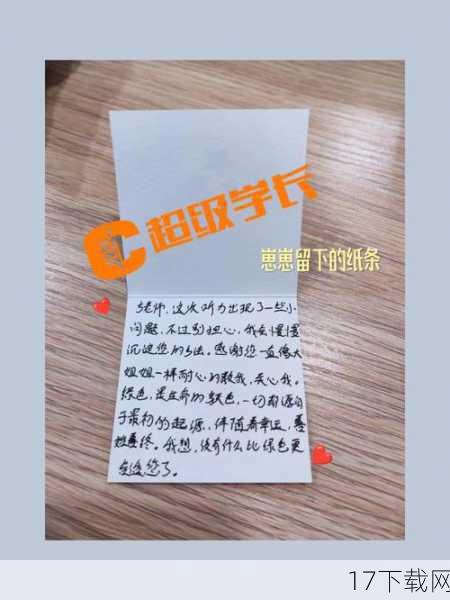 C超级学长
崽崽留下的纸条
老师,这次听力出现了一些小
问题,不过别担心,我会慢慢
沉淀您的方法。感谢您一直像大
姐姐一样耐心的教我,关心我。
绿色,是生命的颜色,一切都源自
于最初的起源,伴随着幸运,善
始善终。我想,没有什么比绿色更
适合您了。
17下载网